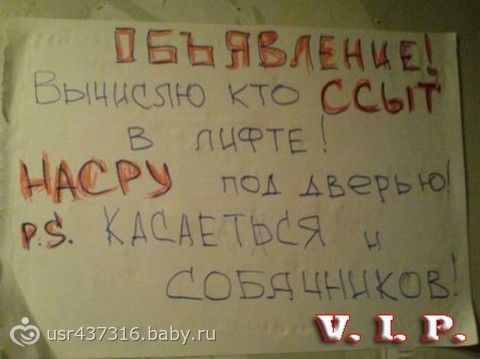 ОБЪЯВЛЕНИЕ!
ВЫЧИСЛЮ КТО ССЫТ
В ЛИФТЕ!
НАСРУ ПОД ДВЕРЬЮ!
P.S. КАСАЕТЬСЯ И
СОБАЧНИКОВ!
V. I. P.
usr437316.baby.ru